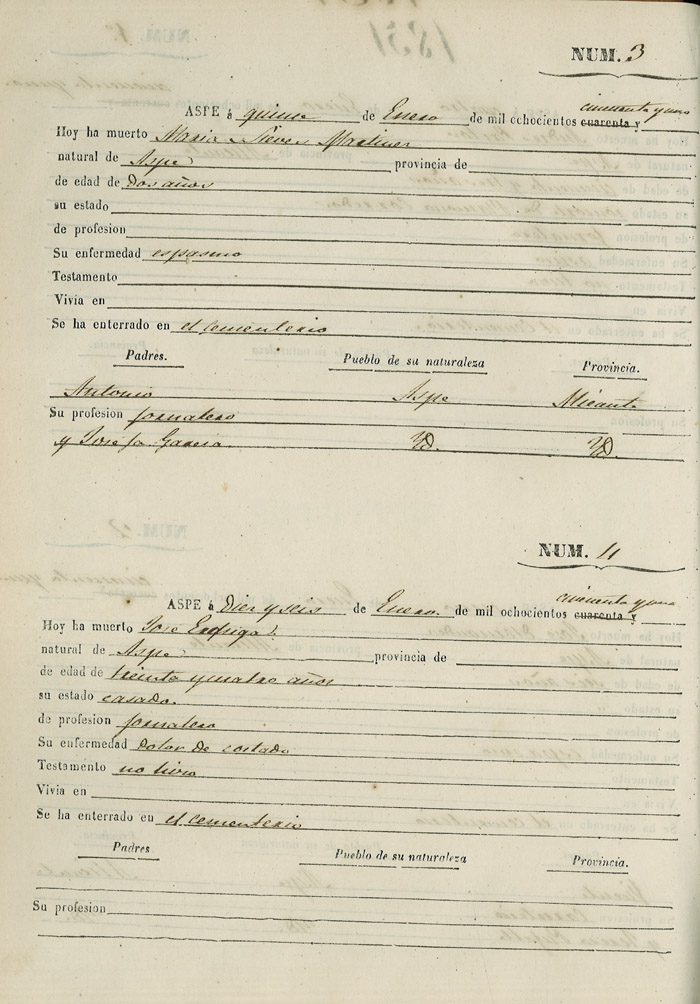 NUM. 3
ASPE á quince de Enero de mil ochocientos cuarenta y cincuenta y uno
Hoy ha muerto Maria Nieves Martinez
natural de Aspe provincia de
de edad de Dos años
su estado
de profesion
Su enfermedad espasmo
Testamento
Vivia en
Se ha enterrado en el cementerio
Padres. Pueblo de su naturaleza Provincia.
Antonio Aspe Alicante
Su profesion jornalero
y Josefa Garcia Yd. Yd.
NUM. 4
ASPE á Diez y seis de Enero de mil ochocientos cuarenta y cincuenta y uno
Hoy ha muerto Jose
natural de Aspe provincia de
de edad de treinta y cuatro años
su estado casado.
de profesion jornalero
Su enfermedad Dolor de costado
Testamento no hizo
Vivia en
Se ha enterrado en el cementerio
Padres Pueblo de su naturaleza Provincia.
Su profesion